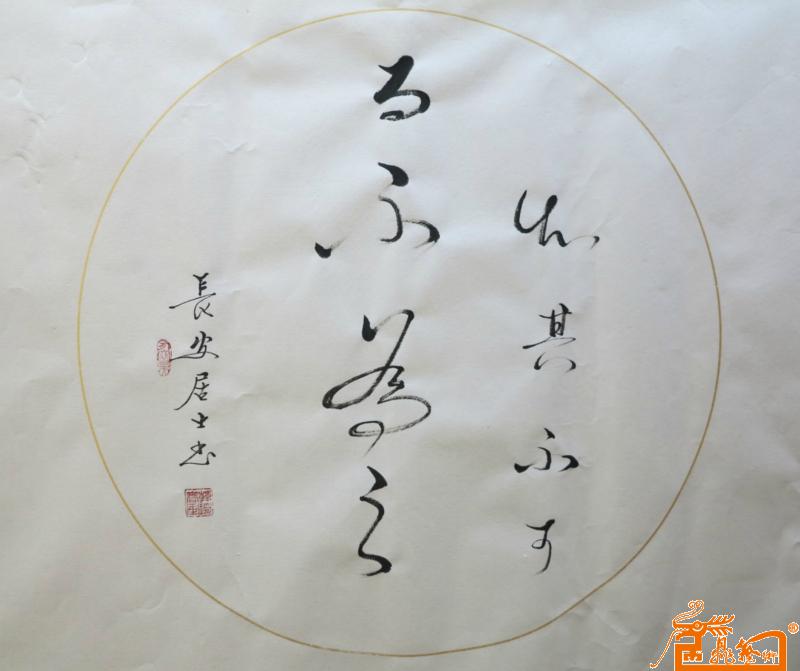 知其不可
而不為之
長安居士书